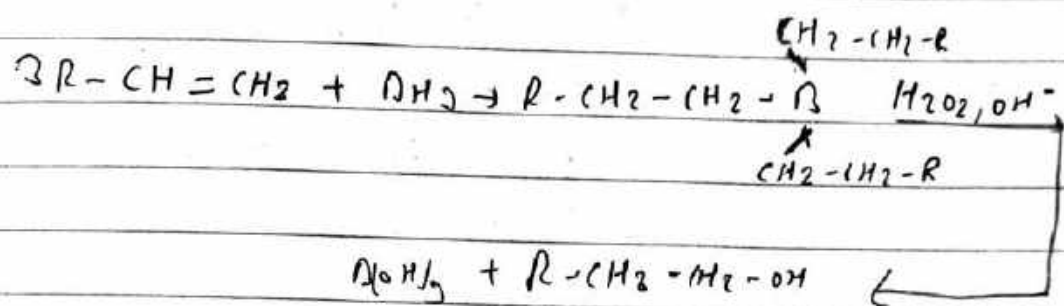 CH2-CH2-R
3R-CH=CH2 + BH3 → R-CH2-CH2-B H2O2, OH⁻
CH2-CH2-R
B(OH)3 + R-CH2-CH2-OH